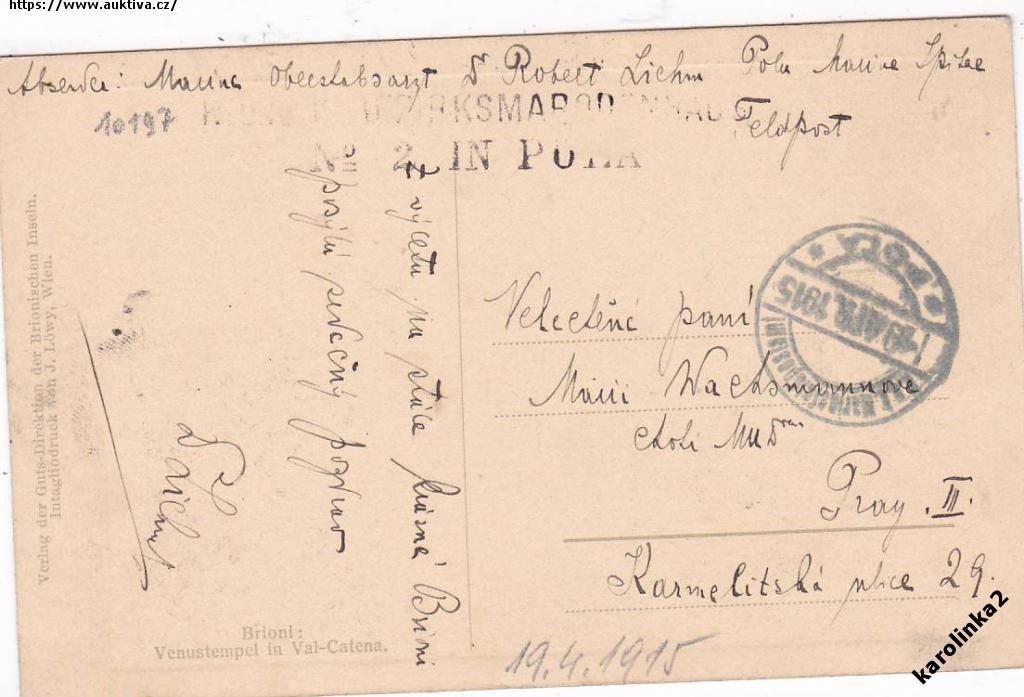 https://www.auktiva.cz/
Absender: Marine Oberstabsarzt Dr Robert Lichm Pola Marine Spital
Feldpost
10197
No 2 IN POLA
Z výletu na stálce krásná Brioni
posýlá srdečný pozdrav
Dr Lichm
Velectěné paní
Marii Wachsmannové
choti MUDra
Prag III.
Karmelitská ulice 29.
POLA
19 APR. 1915
Verlag der Guts-Direktion der Brionischen Inseln.
Intagliodruck von J. Löwy, Wien.
Brioni:
Venustempel in Val-Catena.
19.4.1915
karolinka2